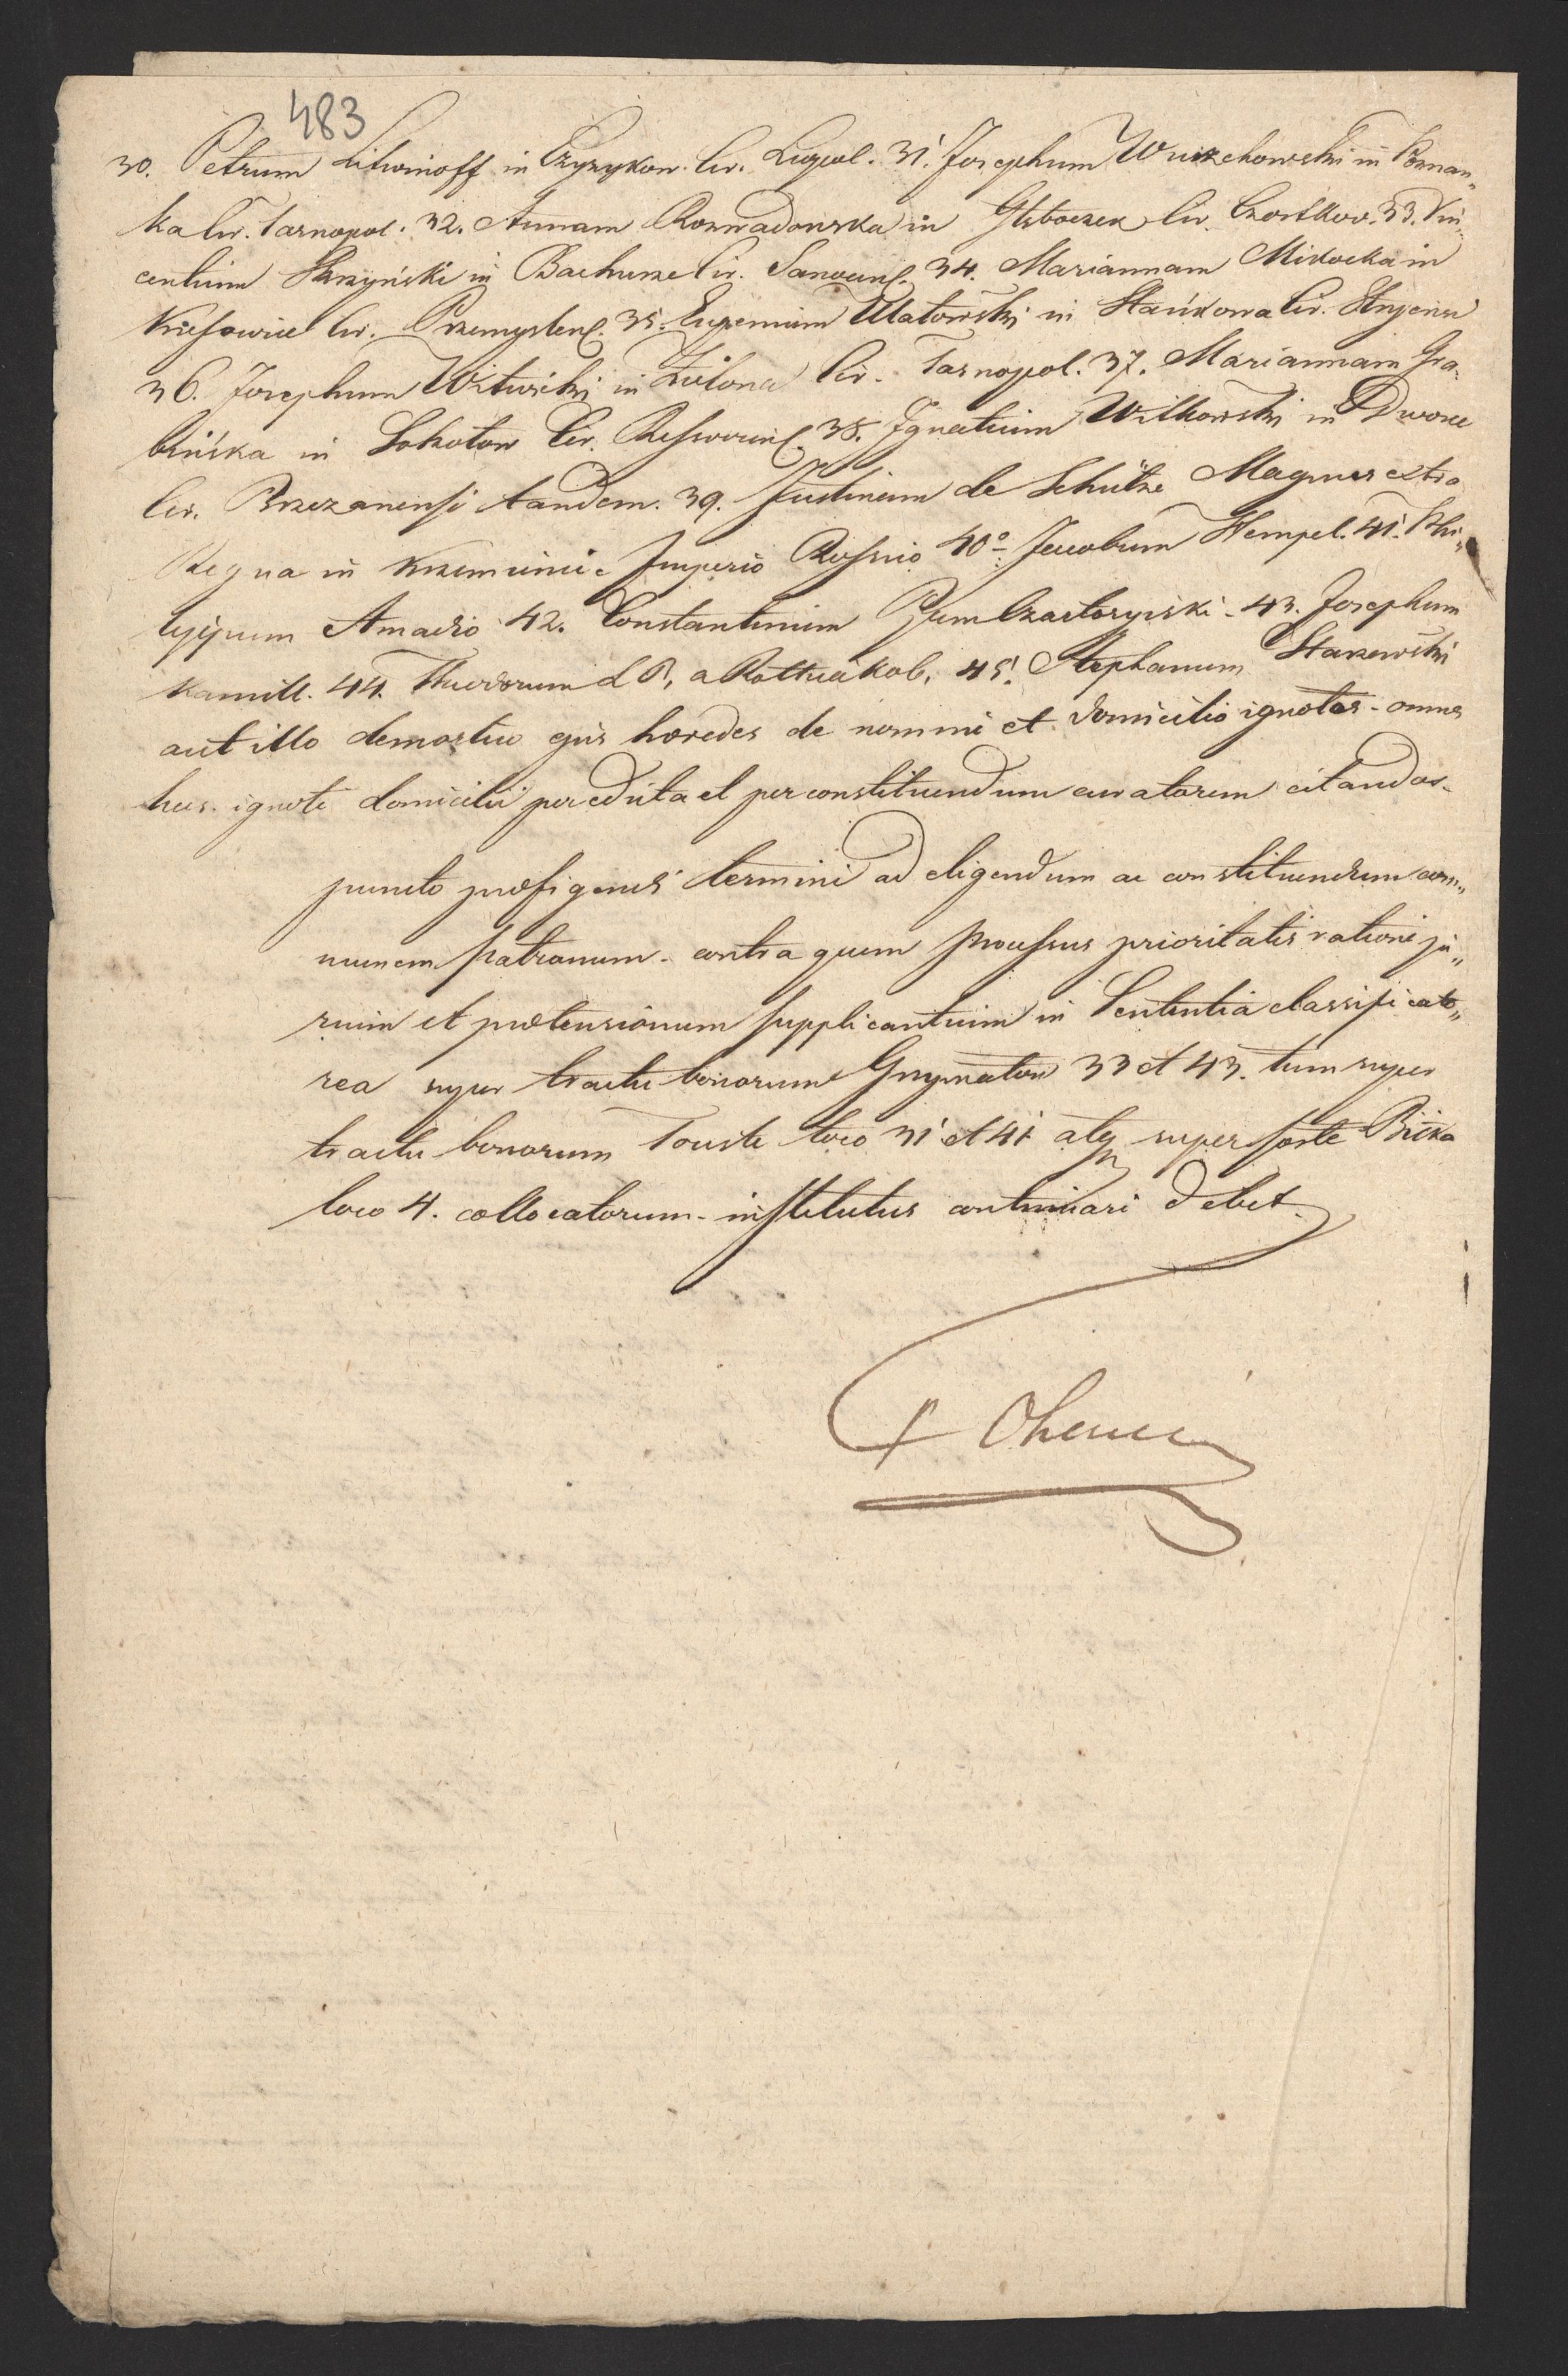 483
30. Petrum Litwinoff in Czyzykow. Cir. Leopol. 31. Josephum Wierzchowski in Poznan„
ka Cir. Tarnopol. 32. Annam Rozwadowska in Głeboczek Cir. Czortkow. 33. Vin„
centium Skrzyński in Bachurze Cir. Sanocens. 34. Mariannam Mikocka in
Krzesowice Cir. Przemyslens. 35. Eugenium Ulatowski in Stańkowa Cir. Stryensi
36. Josephum Witwicki in Zielona Cir. Tarnopol. 37. Mariannam Gra„
bińska in Sokołow Cir. Ressoviens. 38. Ignatium Witkowski in Dworce
Cir. Brzezanensi tandem. 39. Justinum de Schütze Magnus extra
Regna in Krzemieniec Imperio Russiio 40º Jacobum Hempel. 41. Phi„
lippum Amadio 42. Constantinum Czartoryiski. 43. Josephum
Kamill. 44. Theodorum 45. Stephanum Starzewski
aut illo demortuo ejus hæredes de nomine et domicilio ignotos - omnes
hos. ignoti domicilii per edicta et per constituendum curatorem citandos.
puncto præfigendi termini ad eligendum ac constituendum com„
munem patronum. contra quem processus prioritatis ratione ju„
rium et prætensionum supplicantium in Sententia classificato„
rea super tractu bonorum Grzymałow 33 et 43. tum super
tractu bonorum Touste loco 31 et 41 atq super sorte Bucka
loco 4. collocatorum. institutus continuari debet.